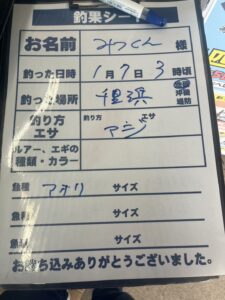 釣果シー
お名前 みつくん 様
釣った日時 1月7日 3時頃
釣った場所 里浜 沖堤防
釣り方 エサ 釣り方 エサ アジ
ルアー、エギの種類・カラー
魚種 アオリ サイズ
魚種 サイズ
魚種 サイズ
お持ち込みありがとうございました。